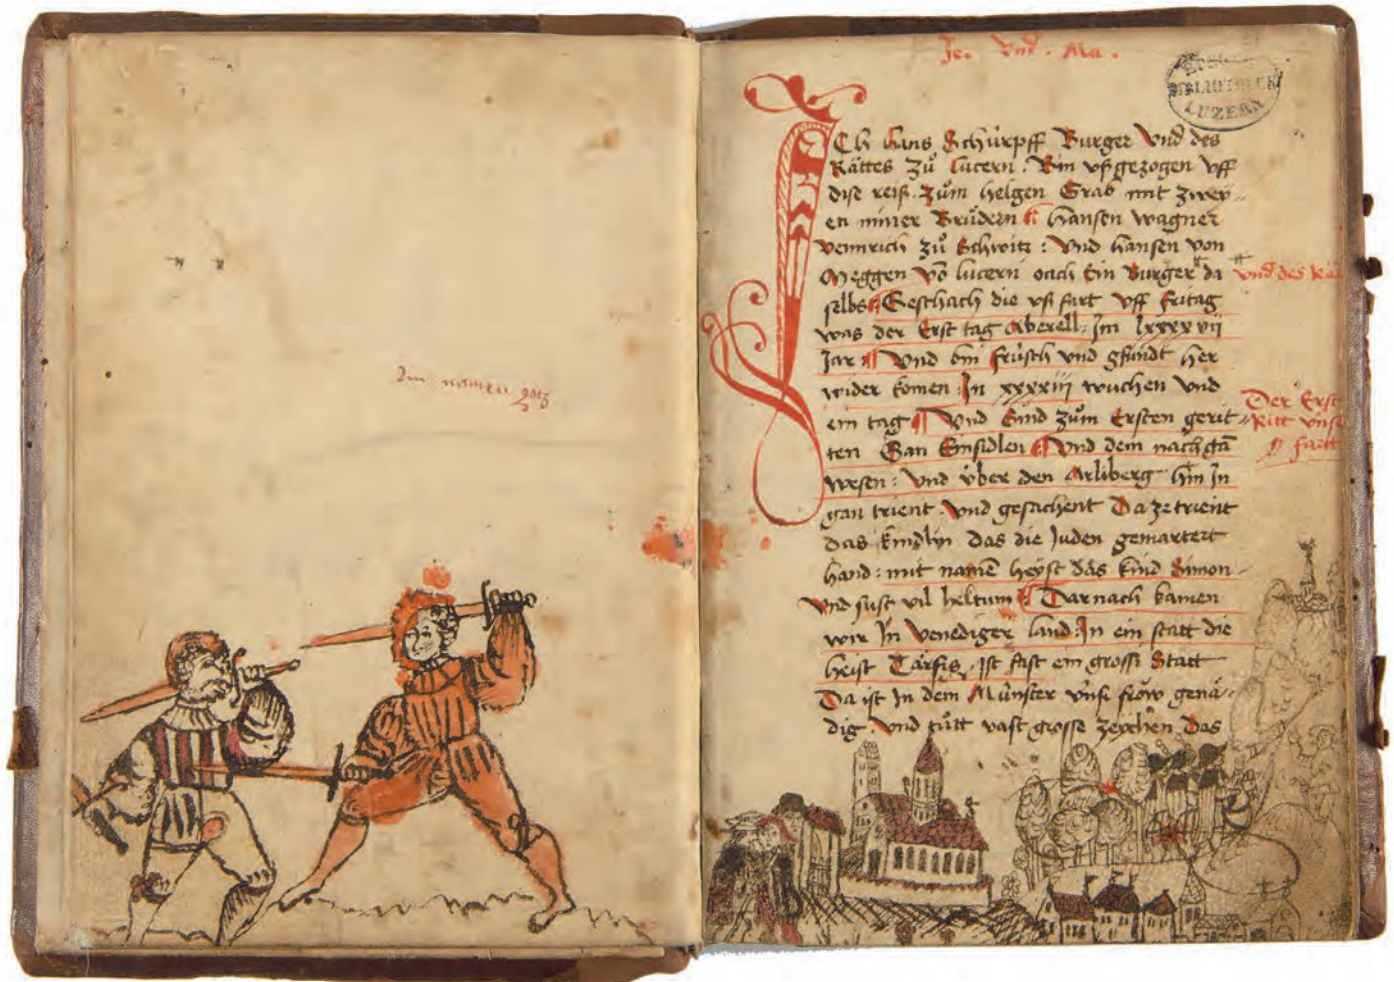 Im namen gotz
Je. vnd. Ma.
BIBLIOTHECK
LUZERN
ICh hans Schürpff Burger vnd des
Rättes zů lucern. Bin vßgezogen vff
dise reiß. zům helgen Grab mit zwey-
en miner Brüdern hansen wagner
vennrich zů Schwitz: vnd hansen von
Meggen võ lucern och Ein Burger da
vnd des Rä
selbs Geschach die vß fart vff fritag
was der Erst tag Aberell. Im lxxxxvii
Jar vnd bin früsch vnd gsundt her
wider komen In xxxxiii wuchen vnd
ein tag vnd Sind zům Ersten gerit-
Der Erst
Ritt vnse
fartt
ten Gan Einsidlen vnd dem nach gã
wesen: vnd über den Arliberg hin In
gan trient. vnd gesachent Da ze trient
das kindlin das die Juden gemartert
hand: mit namē heyst das kind Simon
vnd sust vil heltum Darnach kamen
wir In venediger land: In ein statt die
heist Tärfis. Ist fast ein grossi Statt
Da ist In dem Münster vnsi frow genä-
dig. vnd tůtt vast grosse zeychen Das